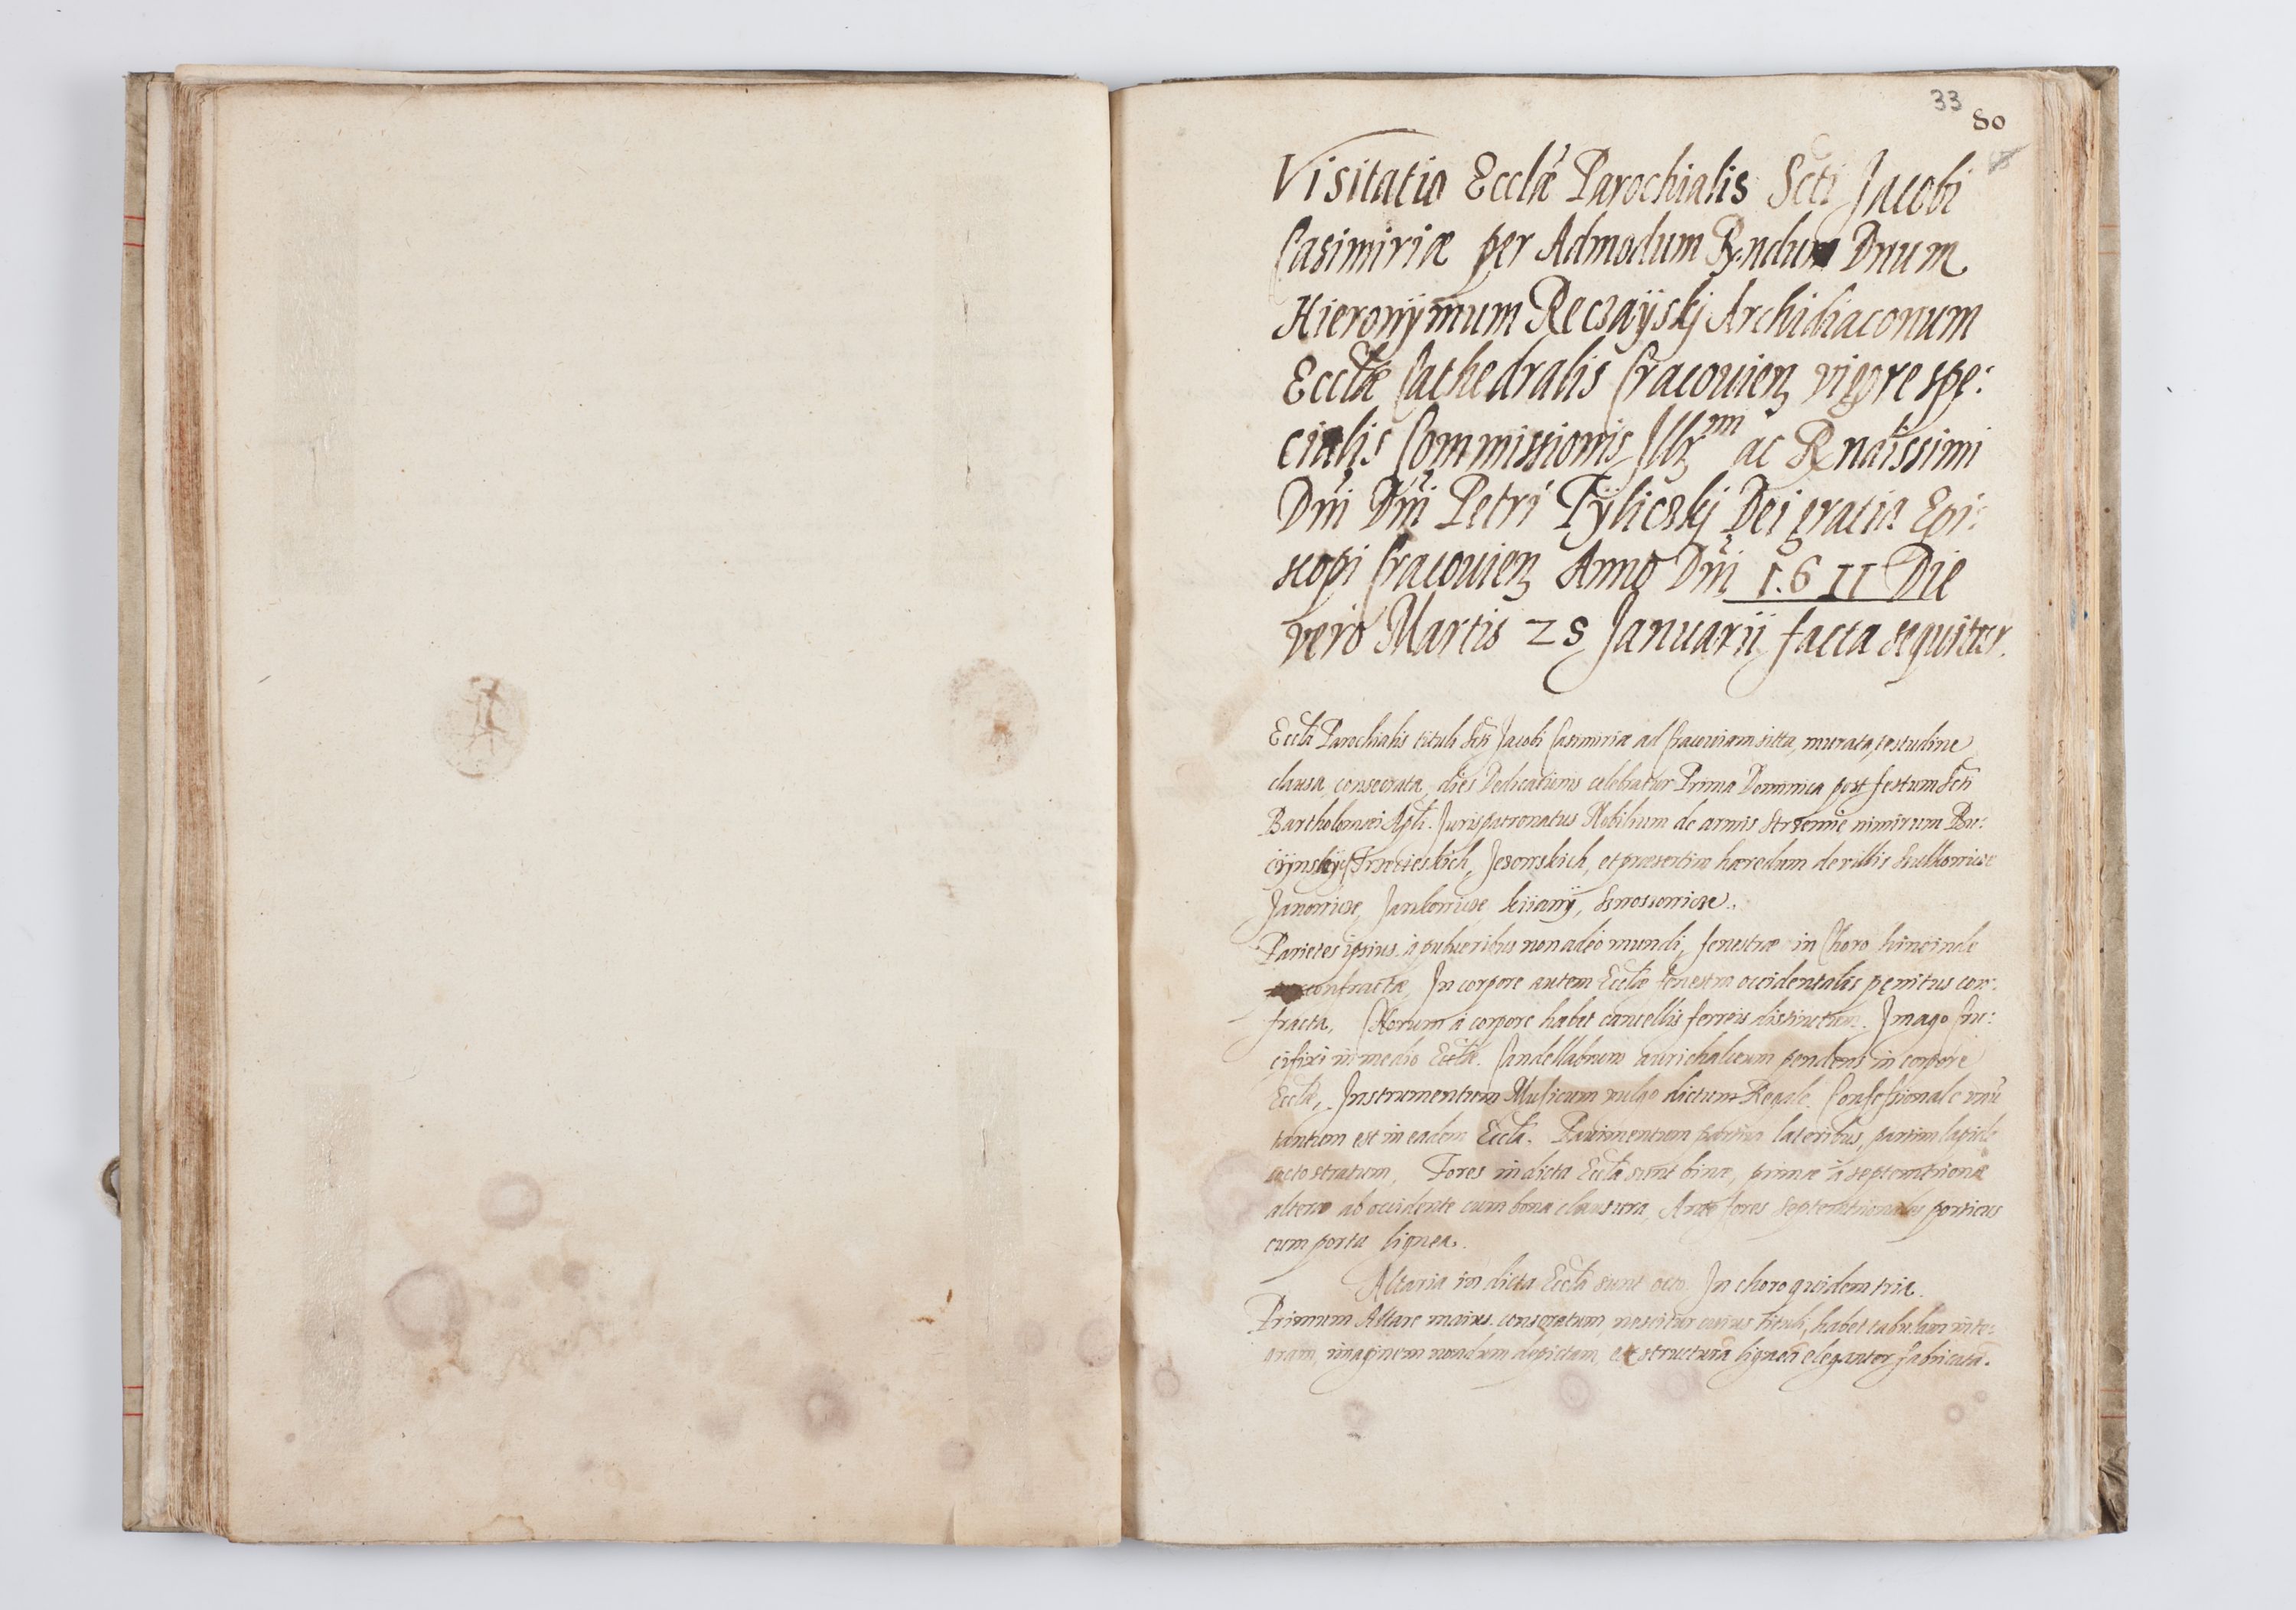 33
80
Visitatio Ecclæ Parochialis Scti Jacobi
Casimiriæ per Admodum Rndum Dnum
Hieronÿmum Reczaÿskj Archidiaconum
Ecclæ Cathedralis Cracouien vigore spe:
cialis Commissionis Illr mi ac Rndissimi
Dni Dni Petri Tÿliczkj Dei gratia Epi:
scopi Cracouien Anno Dni 1.6 11 Die
vero Martis 28 Januarii facta sequitur.
Eccla Parochialis tituli Scti Jacobi Casimiriæ ad Cracouiam sitta, murata, testudine
clausa, consecrata, dies Dedicationis celebratur Prima Dominica post festum Scti
Bartholomæi Apli. Jurispatronatus Nobilium de armis Strzemie nimirum
Jezowskich, et præsertim hæredum de villis
Janowice, Jankowice,
Parietes ipsius à pulueribus non adeo mundi, fenestræ in Choro hincinde
confractæ, In corpore autem Ecclæ fenestra occidentalis penitus con:
fracta, Chorum à corpore habet cancellis ferreis distinctum. Imago Cru:
cifixi in medio Ecclæ. Candellabrum aurichalceum pendens in corpore
Ecclæ, Instrumentum Musicum vulgo dictum Regale. Confessionale unũ
tantum est in eadem Eccla. Pauimentum partim lateribus, partim lapide
cocto stratum, Fores in dicta Eccla sunt binæ, primæ à septemtrione
alteræ ab occidente cum bona clausura, Ante fores septemtrionales porticus
cum porta lignea.
Altaria in dicta Eccla sunt octo. In choro quidem tria.
Primum Altare maius consecratum, nescitur cuius tituli, habet tabulam inte:
gram, imaginem nondum depictam, et structura lignea eleganter fabricata.